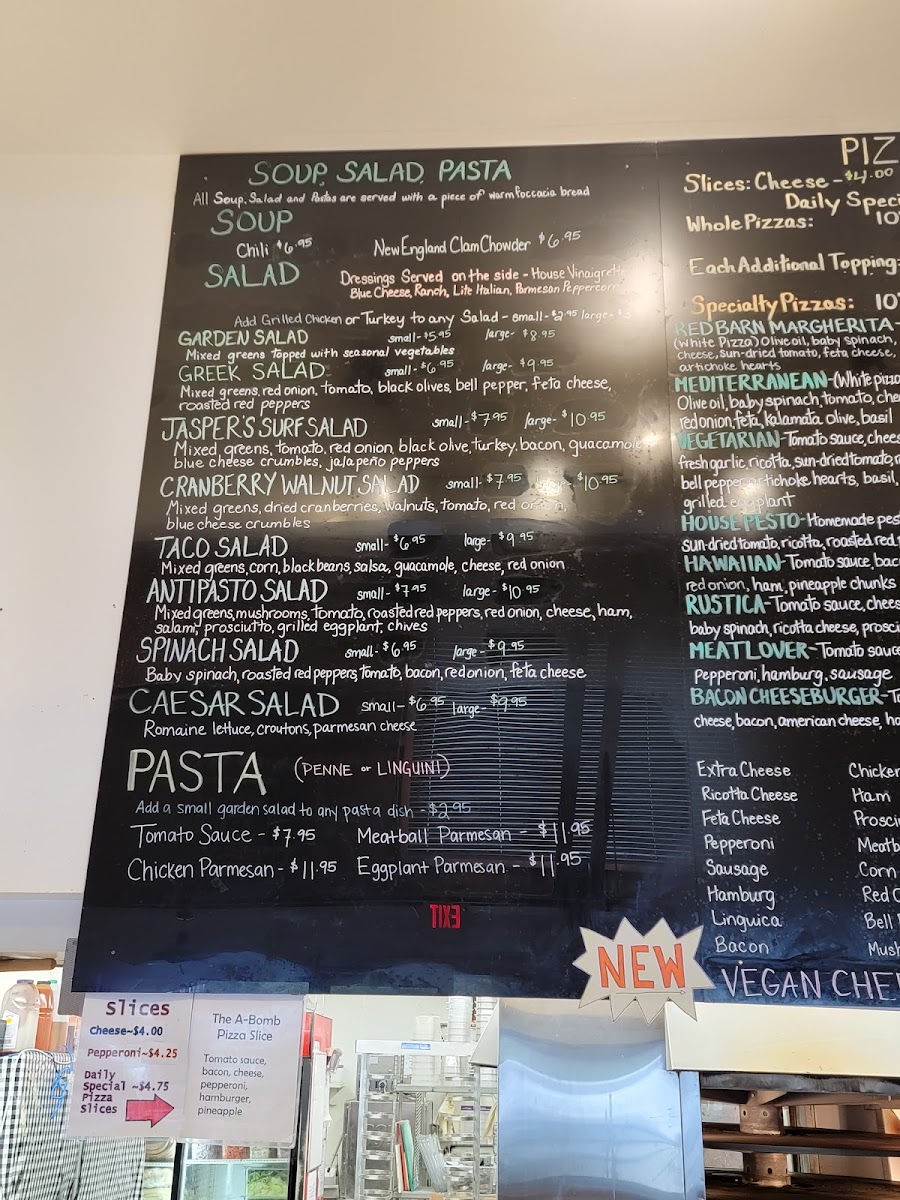 SOUP, SALAD, PASTA
All Soup, Salad and Pastas are served with a piece of warm foccacia bread
SOUP
Chili $6.95 New England Clam Chowder $6.95
SALAD
Dressings Served on the side - House Vinaigrette
Blue Cheese, Ranch, Lite Italian, Parmesan Peppercorn
Add Grilled Chicken or Turkey to any Salad - small - $2.95 large - $3
GARDEN SALAD small - $5.95 large - $8.95
Mixed greens topped with seasonal vegetables
GREEK SALAD small - $6.95 large - $9.95
Mixed greens, red onion, tomato, black olives, bell pepper, feta cheese,
roasted red peppers
JASPER'S SURF SALAD small - $7.95 large - $10.95
Mixed greens, tomato, red onion, black olive, turkey, bacon, guacamole
blue cheese crumbles, jalapeño peppers
CRANBERRY WALNUT SALAD small - $7.95 $10.95
Mixed greens, dried cranberries, walnuts, tomato, red onion,
blue cheese crumbles
TACO SALAD small - $6.95 large - $9.95
Mixed greens, corn, black beans, salsa, guacamole, cheese, red onion
ANTIPASTO SALAD small - $7.95 large - $10.95
Mixed greens, mushrooms, tomato, roasted red peppers, red onion, cheese, ham,
salami, prosciutto, grilled eggplant, chives
SPINACH SALAD small - $6.95 large - $9.95
Baby spinach, roasted red peppers, tomato, bacon, red onion, feta cheese
CAESAR SALAD small - $6.95 large - $9.95
Romaine lettuce, croutons, parmesan cheese
PASTA (PENNE or LINGUINI)
Add a small garden salad to any pasta dish - $2.95
Tomato Sauce - $7.95 Meatball Parmesan - $11.95
Chicken Parmesan - $11.95 Eggplant Parmesan - $11.95
EXIT
PIZ
Slices: Cheese - $4.00
Daily Speci
Whole Pizzas: 10"
Each Additional Topping:
Specialty Pizzas: 10"
RED BARN MARGHERITA -
(White Pizza) Olive oil, baby spinach,
cheese, sun-dried tomato, feta cheese,
artichoke hearts
MEDITERRANEAN - (White pizza
Olive oil, baby spinach, tomato, che
red onion, feta, kalamata olive, basil
VEGETARIAN - Tomato sauce, chees
fresh garlic, ricotta, sun-dried tomato, r
bell pepper, artichoke hearts, basil,
grilled eggplant
HOUSE PESTO - Homemade pes
sun-dried tomato, ricotta, roasted red
HAWAIIAN - Tomato sauce, bac
red onion, ham, pineapple chunks
RUSTICA - Tomato sauce, chees
baby spinach, ricotta cheese, prosci
MEATLOVER - Tomato sauce
pepperoni, hamburg, sausage
BACON CHEESEBURGER - To
cheese, bacon, american cheese, ha
Extra Cheese Chicken
Ricotta Cheese Ham
Feta Cheese Prosciu
Pepperoni Meatb
Sausage Corn
Hamburg Red O
Linguica Bell
Bacon Mush
NEW
VEGAN CHE
Slices
Cheese~$4.00
Pepperoni~$4.25
Daily
Special ~$4.75
Pizza
Slices
The A-Bomb
Pizza Slice
Tomato sauce,
bacon, cheese,
pepperoni,
hamburger,
pineapple